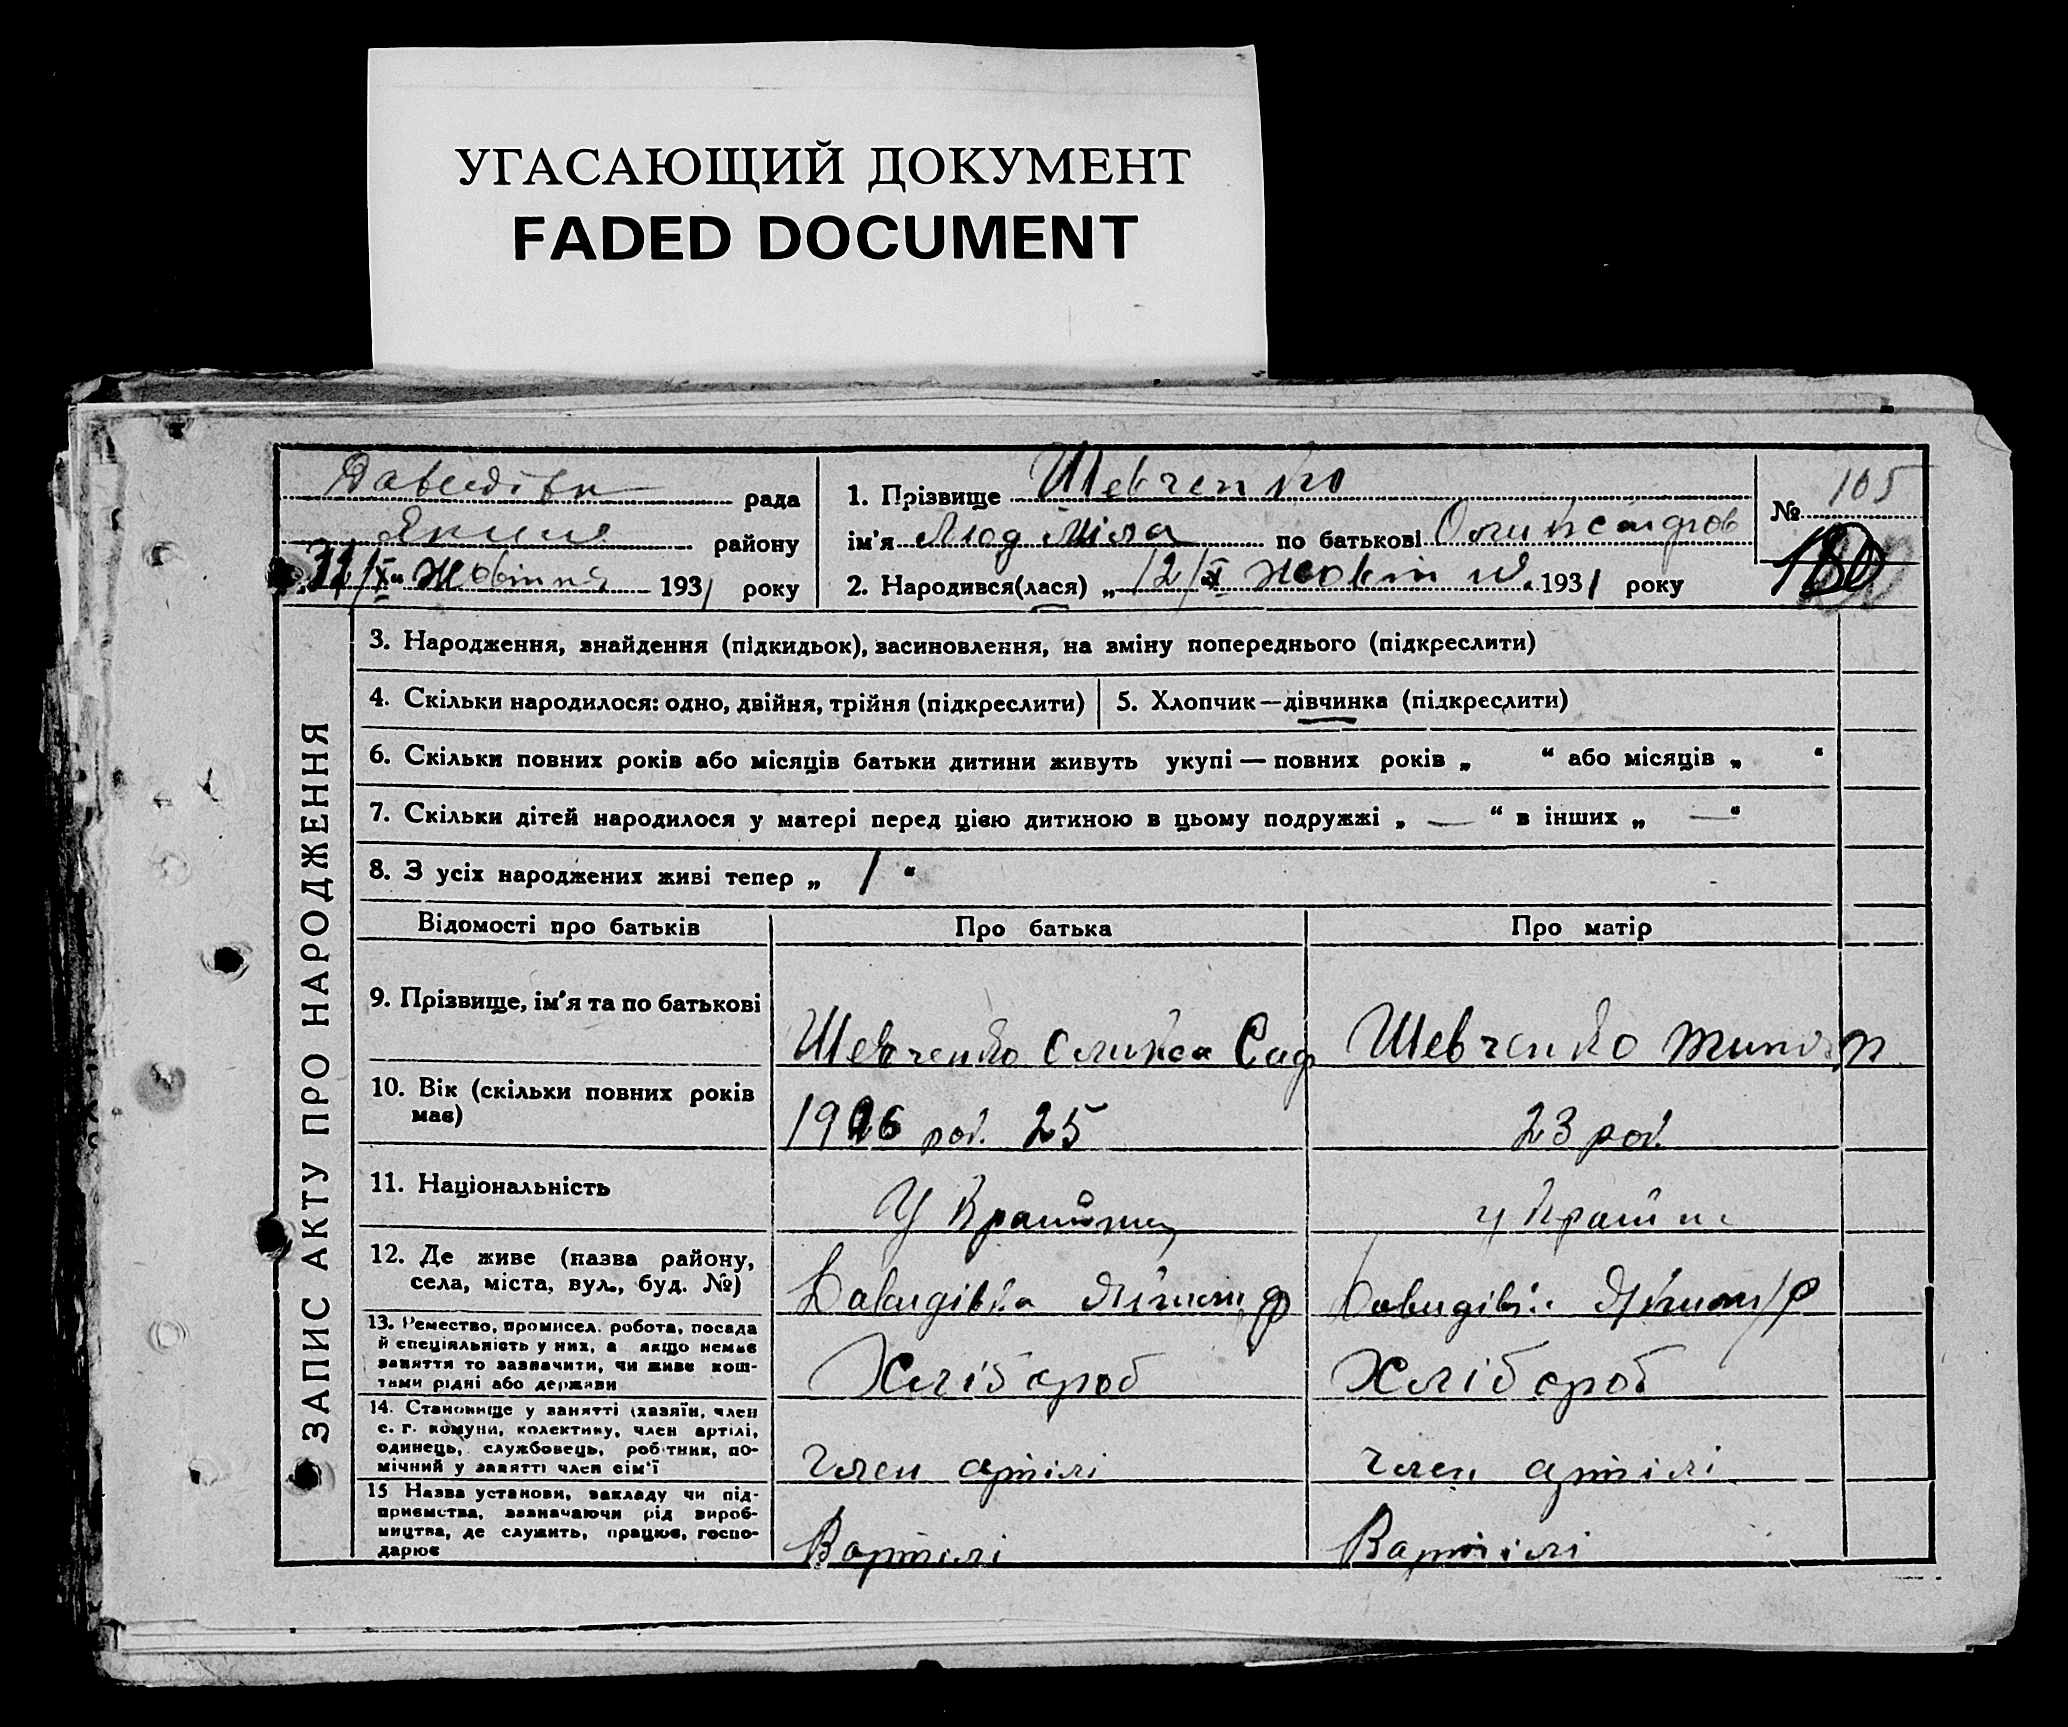 УГАСАЮЩИЙ ДОКУМЕНТ
FADED DOCUMENT
рада
району
31/X“ Жовтня 1931 року
1. Прізвище Шевченко
ім'я Людміла по батькові
2. Народився(лася) „12/X Жовтня 1931 року
№ 105
180
ЗАПИС АКТУ ПРО НАРОДЖЕННЯ
3. Народження, знайдення (підкидьок), засиновлення, на зміну попереднього (підкреслити)
4. Скільки народилося: одно, двійня, трійня (підкреслити)
5. Хлопчик — дівчинка (підкреслити)
6. Скільки повних років або місяців батьки дитини живуть укупі — повних років „ “ або місяців „ “
7. Скільки дітей народилося у матері перед цією дитиною в цьому подружжі „ — “ в інших „ — “
8. З усіх народжених живі тепер „ 1 “
Відомості про батьків Про батька Про матір
9. Прізвище, ім'я та по батькові
Шевченко
Шевченко
10. Вік (скільки повних років
має)
25
23 рок.
11. Національність
12. Де живе (назва району,
села, міста, вул., буд. №)
Давидівка
13. Ремество, промисел. робота, посада
й спеціяльність у них, а якщо немає
заняття то зазначити, чи живе кош-
тами рідні або держави
Хлібороб
Хлібороб
14. Становище у занятті (хазяїн, член
с. г. комуни, колективу, член артілі,
одинець, службовець, робітник, по-
мічний у занятті член сім'ї
Член артілі
Член артілі
15 Назва установи, закладу чи під-
приємства, зазначаючи рід вироб-
ництва, де служить, працює, госпо-
дарює
Вартілі
Вартілі